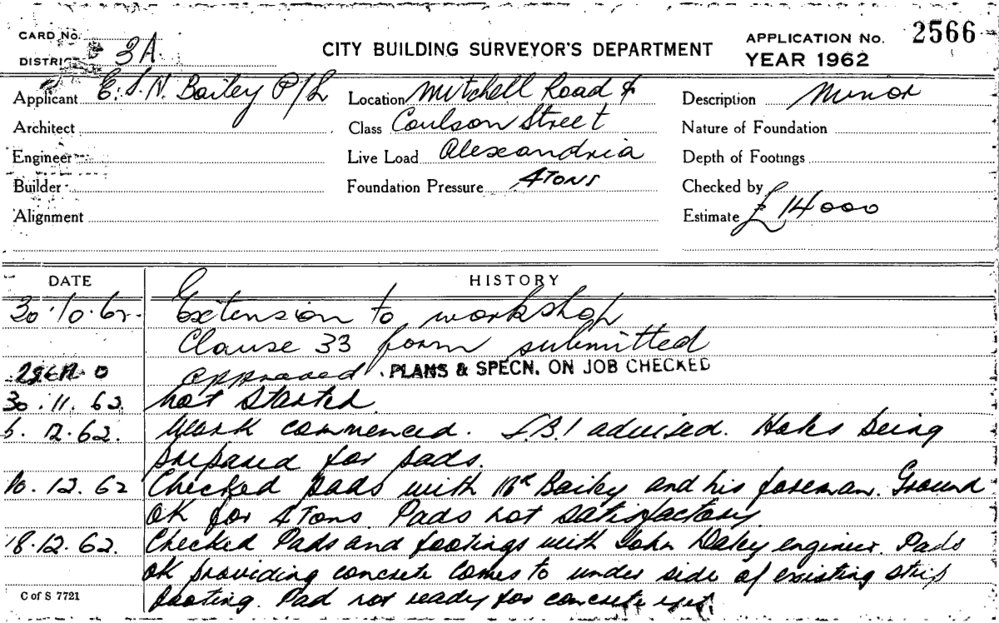 CARD No.
DISTRICT 3A
CITY BUILDING SURVEYOR'S DEPARTMENT
APPLICATION No. 2566
YEAR 1962
Applicant E. S. N. Bailey P/L
Architect
Engineer
Builder
Alignment
Location Mitchell Road &
Class Coulson Street
Live Load Alexandria
Foundation Pressure 4 Tons
Description Minor
Nature of Foundation
Depth of Footings
Checked by
Estimate £14000
DATE HISTORY
30.10.62. Extension to workshop
Clause 33 form submitted
approved. PLANS & SPECN. ON JOB CHECKED
30.11.62. Not Started.
12.62. Work commenced. S.B.I advised. Holes being
prepared for pads.
10.12.62 Checked pads with Mr Bailey and his foreman. Ground
OK for 4Tons. Pads not satisfactory
18.12.62. Checked Pads and footings with John Daley engineer. Pads
OK providing concrete comes to under side of existing strip
footing. Pad not ready for concrete yet.
C of S 7721